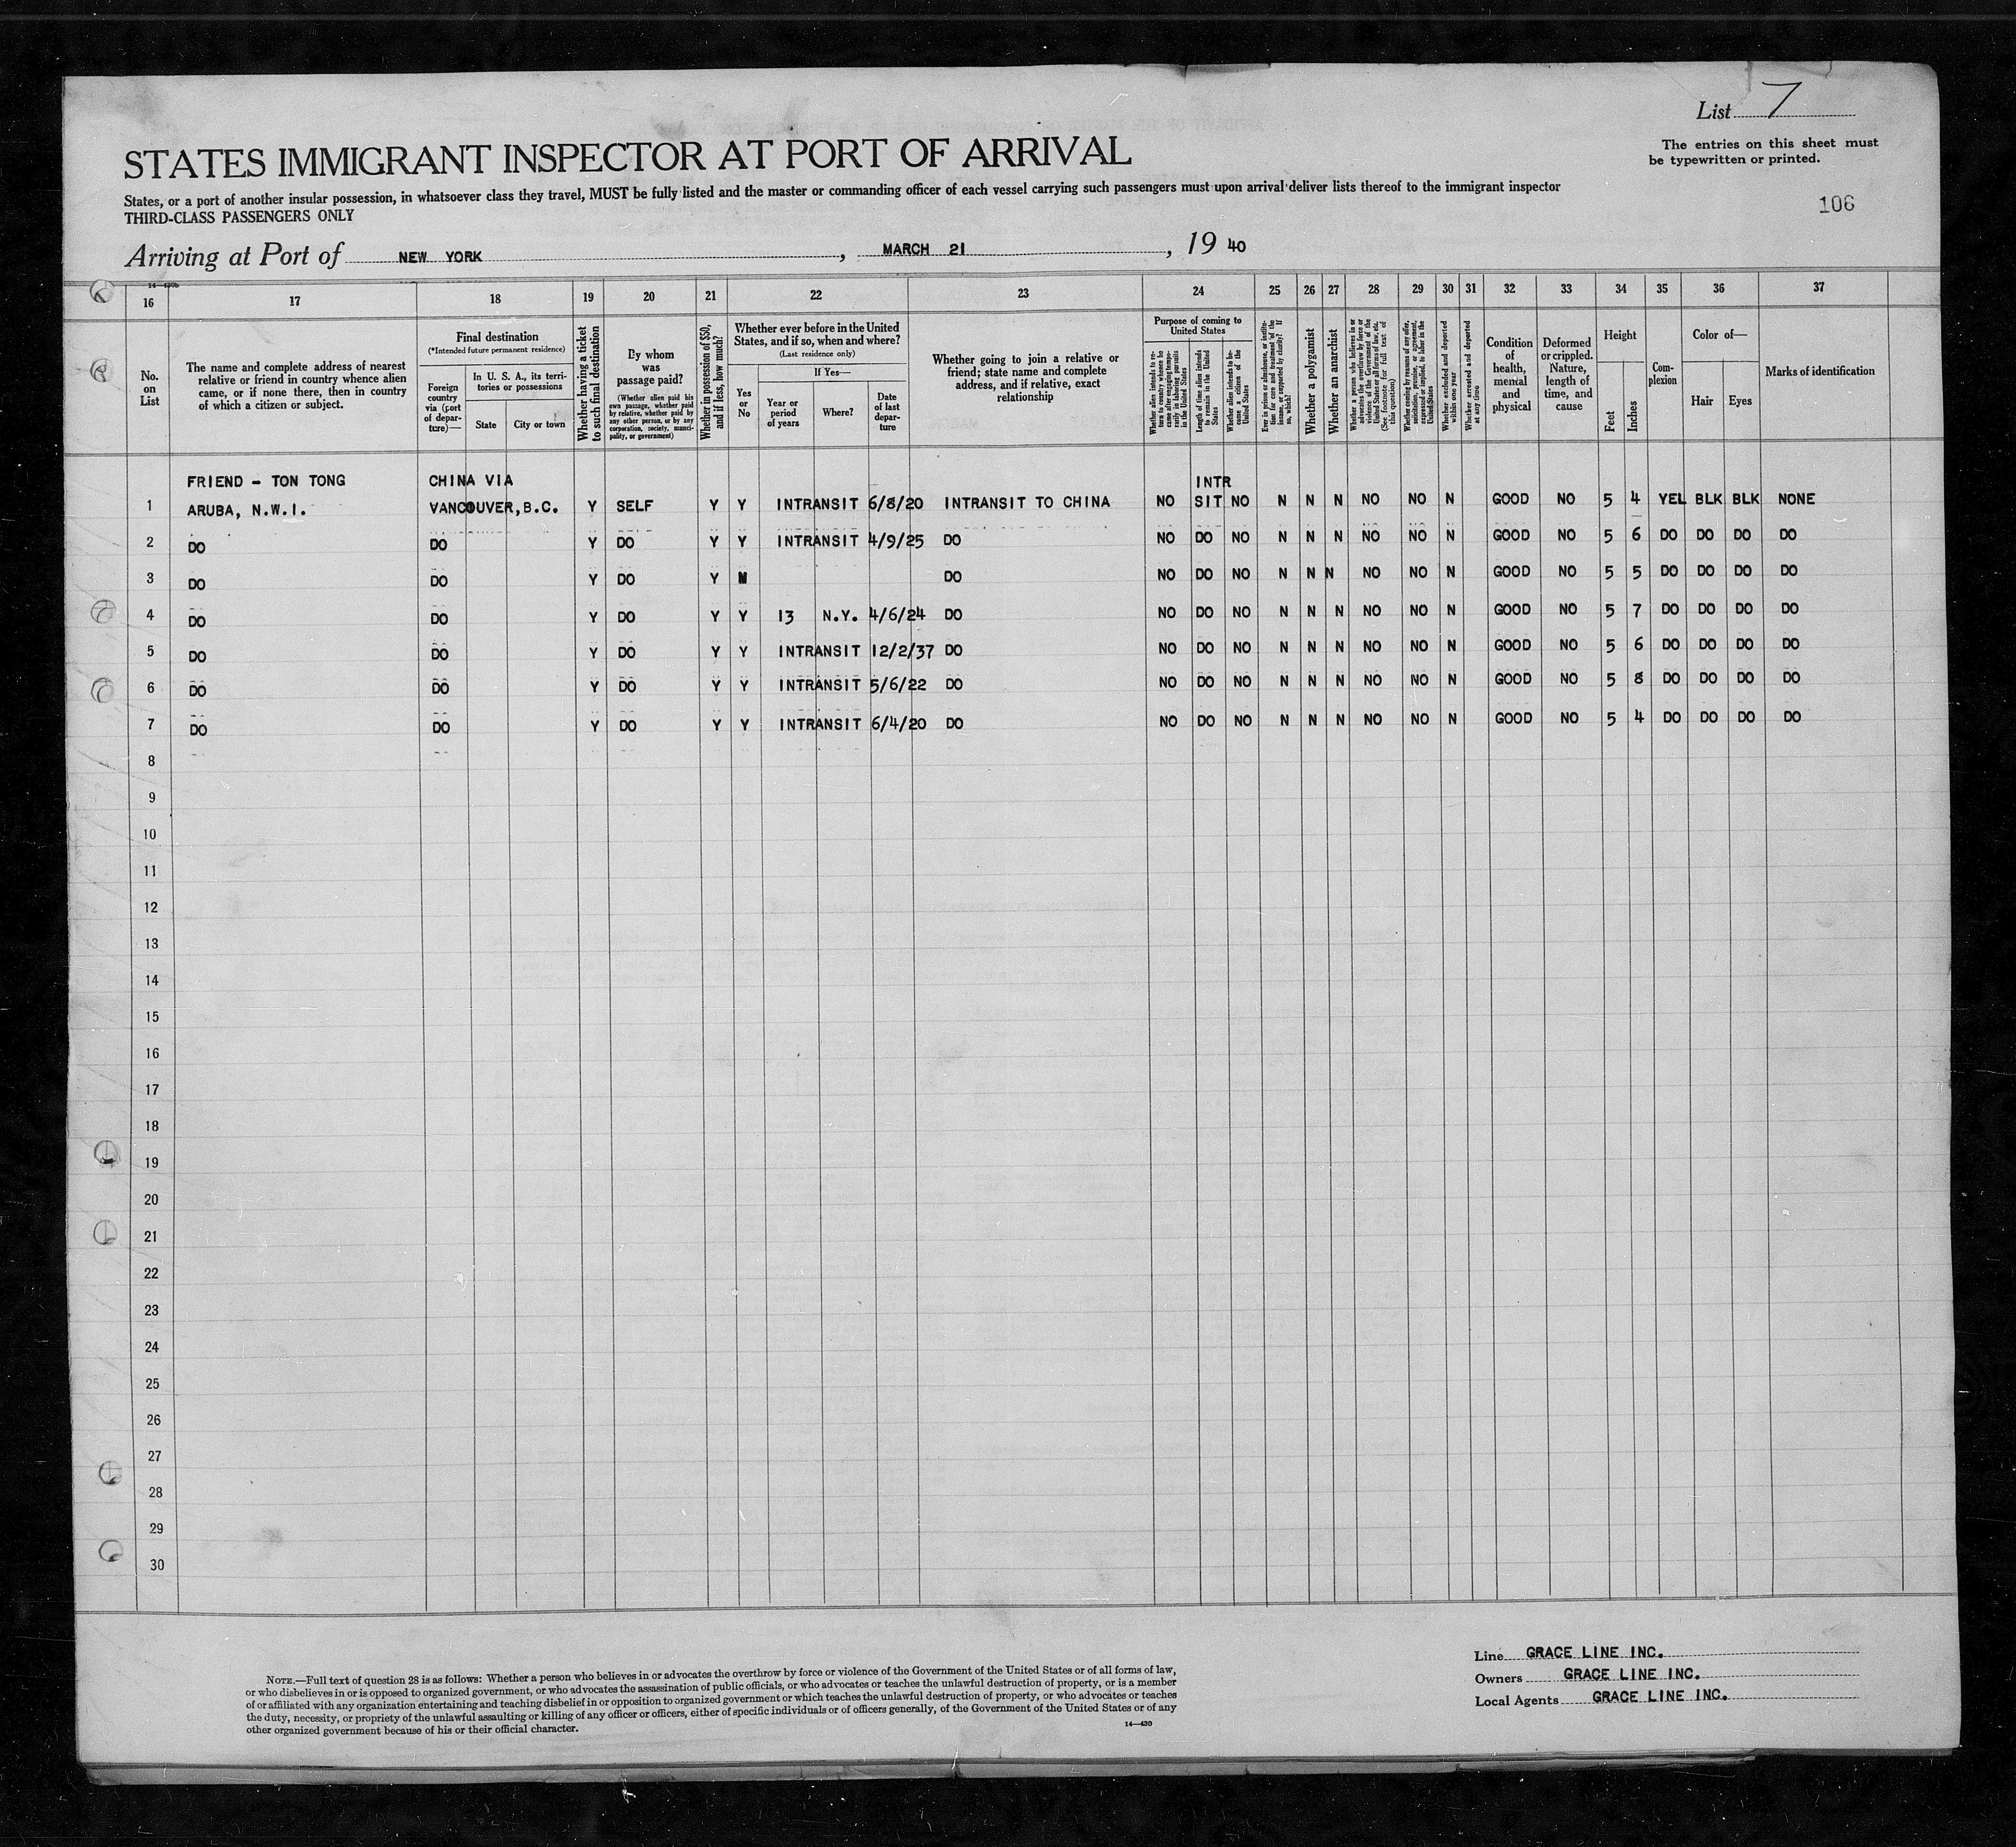 List 7
The entries on this sheet must
be typewritten or printed.
106
STATES IMMIGRANT INSPECTOR AT PORT OF ARRIVAL
States, or a port of another insular possession, in whatsoever class they travel, MUST be fully listed and the master or commanding officer of each vessel carrying such passengers must upon arrival deliver lists thereof to the immigrant inspector
THIRD-CLASS PASSENGERS ONLY
Arriving at Port of NEW YORK, MARCH 21, 19 40
16 17 18 19 20 21 22 23 24 25 26 27 28 29 30 31 32 33 34 35 36 37
No.
on
List
The name and complete address of nearest
relative or friend in country whence alien
came, or if none there, then in country
of which a citizen or subject.
Final destination
(*Intended future permanent residence)
Foreign
country
via (port
of depar-
ture)—
In U. S. A., its terri-
tories or possessions
State
City or town
Whether having a ticket
to such final destination
By whom
was
passage paid?
(Whether alien paid his
own passage, whether paid
by relative, whether paid by
any other person, or by any
corporation, society, munici-
pality, or government)
Whether in possession of $50,
and if less, how much?
Whether ever before in the United
States, and if so, when and where?
(Last residence only)
Yes
or
No
If Yes—
Year or
period
of years
Where?
Date
of last
depar-
ture
Whether going to join a relative or
friend; state name and complete
address, and if relative, exact
relationship
Purpose of coming to
United States
Whether alien intends to re-
turn to country whence he
came after engaging tempo-
rarily in laboring pursuits
in the United States
Length of time alien intends
to remain in the United
States
Whether alien intends to be-
come a citizen of the
United States
Ever in prison or almshouse, or institu-
tion for care and treatment of the
insane, or supported by charity? If
so, which?
Whether a polygamist
Whether an anarchist
Whether a person who believes in or
advocates the overthrow by force or
violence of the Government of the
United States or all forms of law, etc.
(See footnote for full text of
this question)
Whether coming by reasons of any offer,
solicitation, promise, or agreement,
expressed or implied, to labor in the
United States
Whether excluded and deported
within one year
Whether arrested and deported
at any time
Condition
of
health,
mental
and
physical
Deformed
or crippled.
Nature,
length of
time, and
cause
Height
Feet
Inches
Com-
plexion
Color of—
Hair
Eyes
Marks of identification
FRIEND - TON TONG CHINA VIA INTR
1 ARUBA, N.W.I. VANCOUVER, B.C. Y SELF Y Y INTRANSIT 6/8/20 INTRANSIT TO CHINA NO SIT NO N N N NO NO N GOOD NO 5 4 YEL BLK BLK NONE
2 DO DO Y DO Y Y INTRANSIT 4/9/25 DO NO DO NO N N N NO NO N GOOD NO 5 6 DO DO DO DO
3 DO DO Y DO Y N DO NO DO NO N N N NO NO N GOOD NO 5 5 DO DO DO DO
4 DO DO Y DO Y Y 13 N.Y. 4/6/24 DO NO DO NO N N N NO NO N GOOD NO 5 7 DO DO DO DO
5 DO DO Y DO Y Y INTRANSIT 12/2/37 DO NO DO NO N N N NO NO N GOOD NO 5 6 DO DO DO DO
6 DO DO Y DO Y Y INTRANSIT 5/6/22 DO NO DO NO N N N NO NO N GOOD NO 5 8 DO DO DO DO
7 DO DO Y DO Y Y INTRANSIT 6/4/20 DO NO DO NO N N N NO NO N GOOD NO 5 4 DO DO DO DO
8
9
10
11
12
13
14
15
16
17
18
19
20
21
22
23
24
25
26
27
28
29
30
NOTE.—Full text of question 28 is as follows: Whether a person who believes in or advocates the overthrow by force or violence of the Government of the United States or of all forms of law,
or who disbelieves in or is opposed to organized government, or who advocates the assassination of public officials, or who advocates or teaches the unlawful destruction of property, or is a member
of or affiliated with any organization entertaining and teaching disbelief in or opposition to organized government or which teaches the unlawful destruction of property, or who advocates or teaches
the duty, necessity, or propriety of the unlawful assaulting or killing of any officer or officers, either of specific individuals or of officers generally, of the Government of the United States or of any
other organized government because of his or their official character.
14—430
Line GRACE LINE INC.
Owners GRACE LINE INC.
Local Agents GRACE LINE INC.